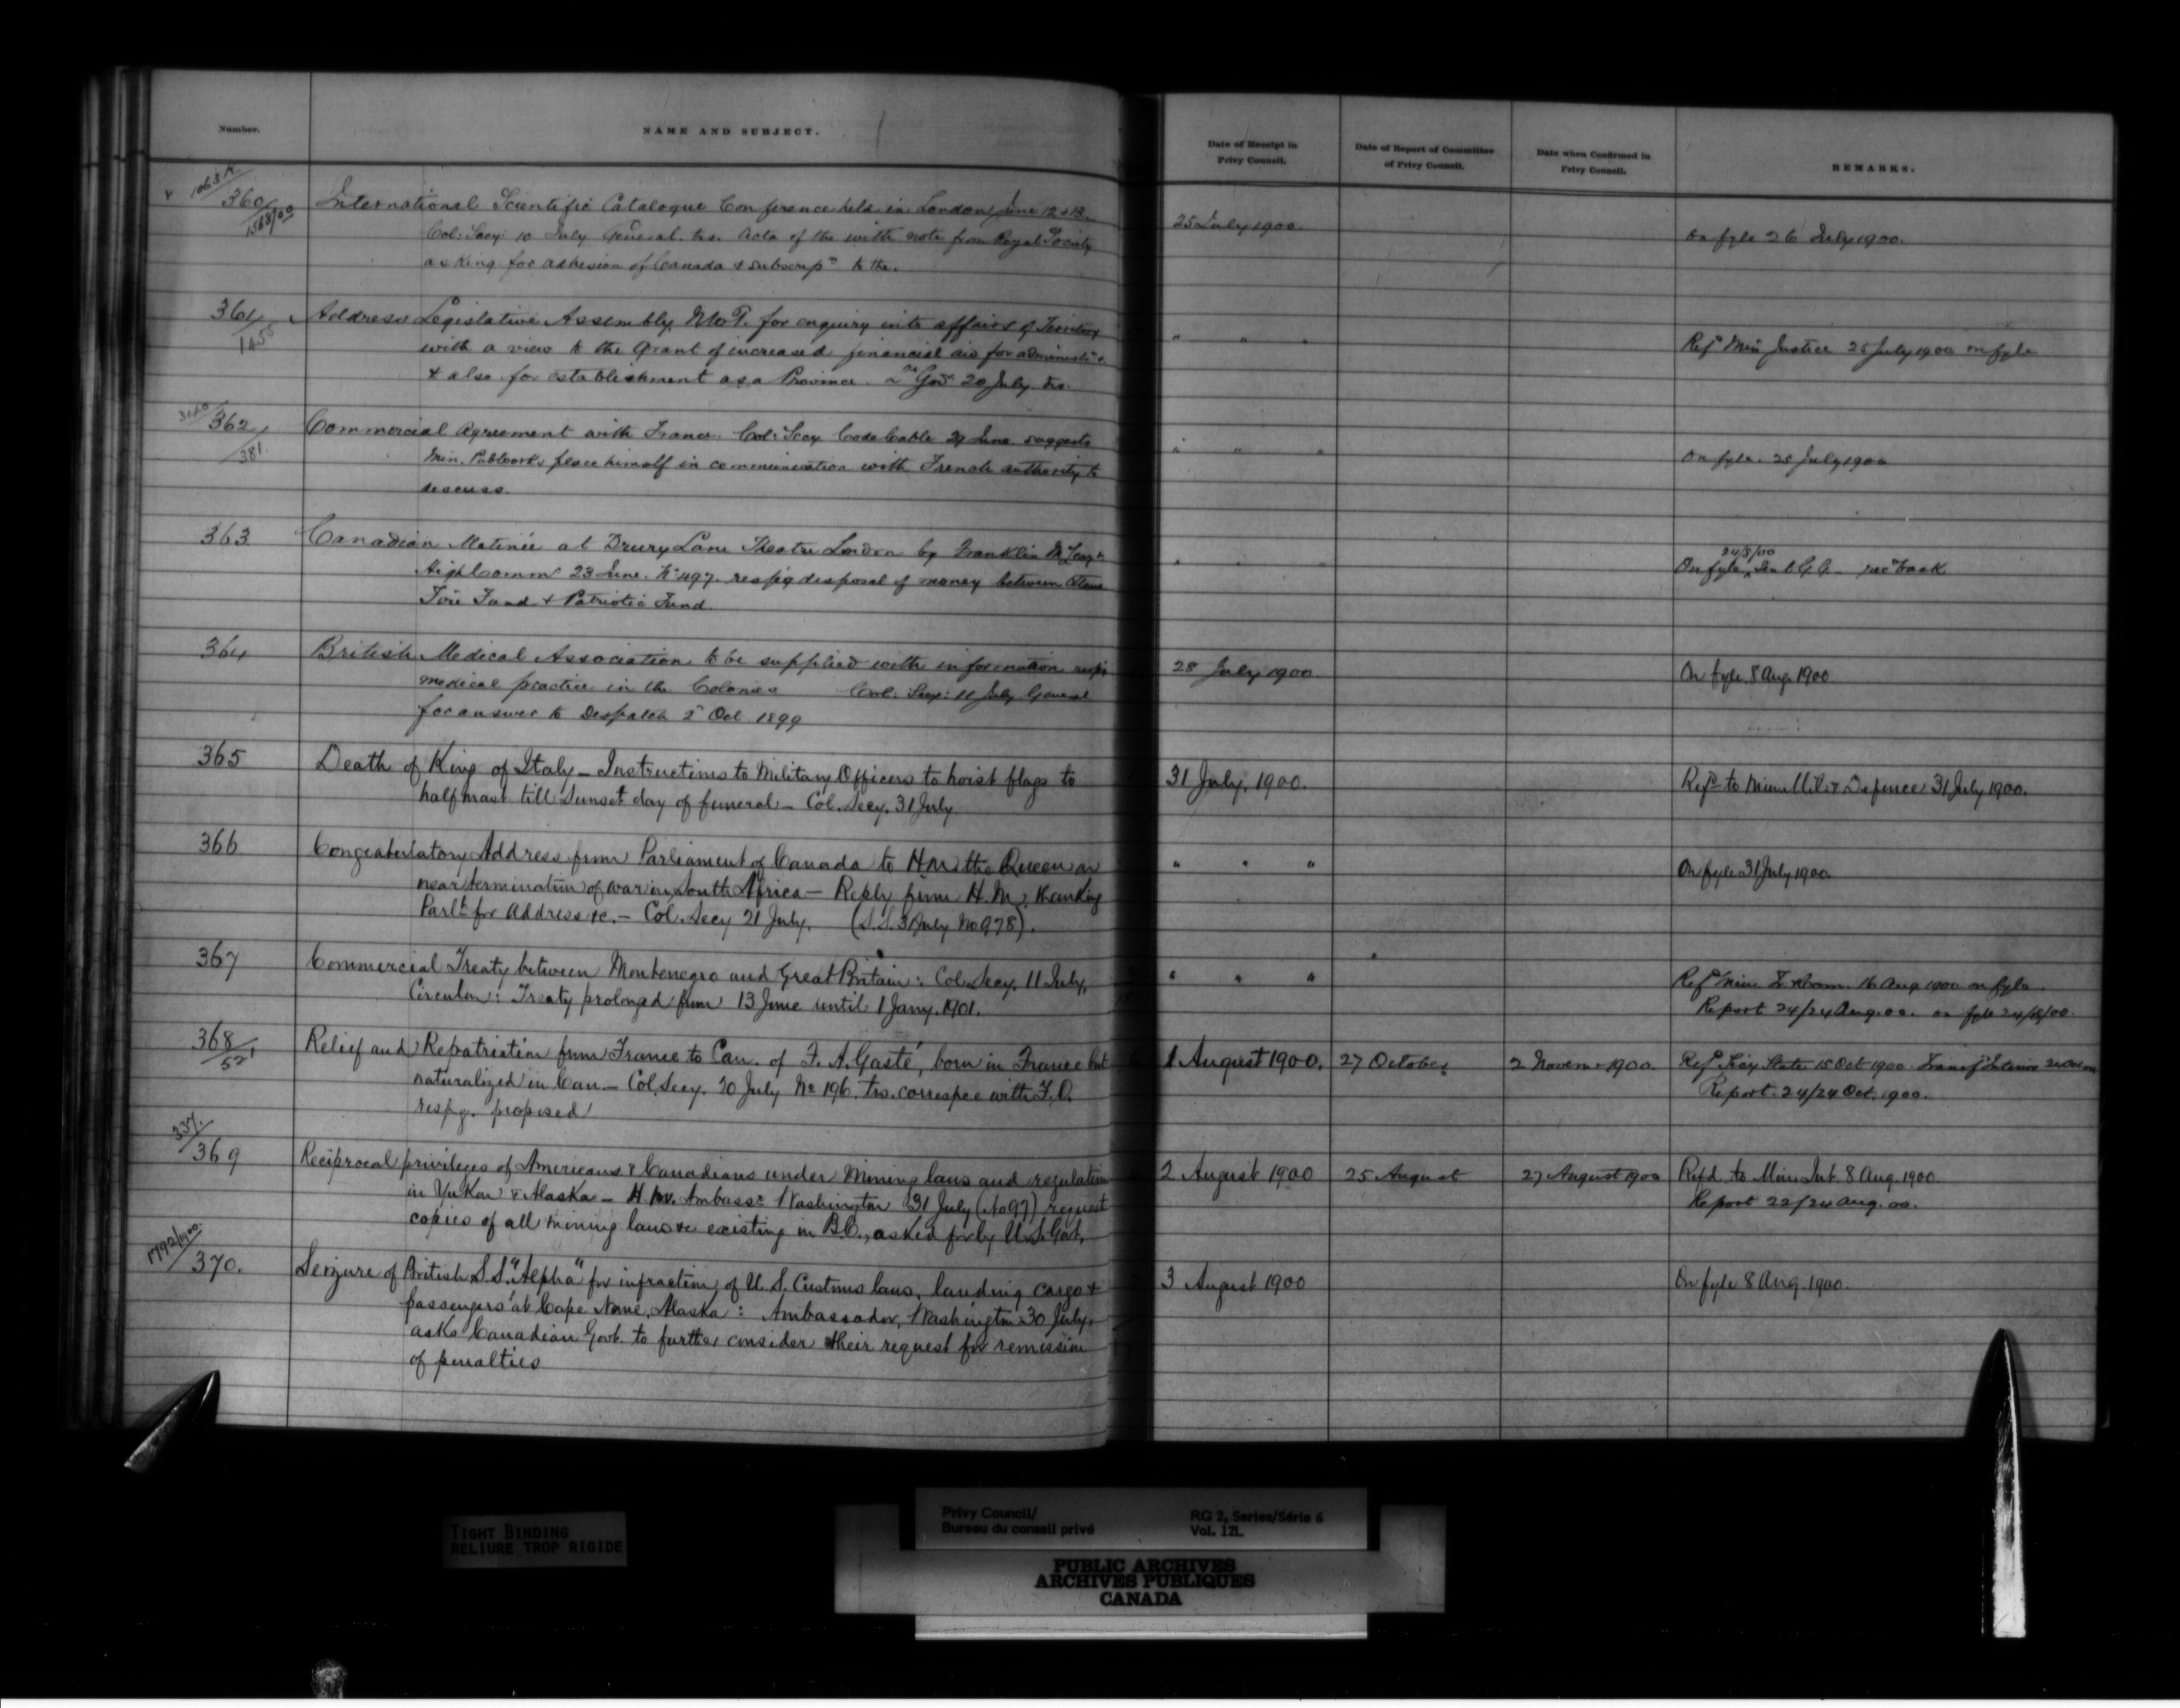 Number.
NAME AND SUBJECT.
Date of Receipt in Privy Council.
Date of Report of Committee of Privy Council.
Date when Confirmed in Privy Council.
REMARKS.
1063 K
360
1588/00
International Scientific Catalogue Conference held in London June 12 & 13
Col: Secy: 10 July General. trs. Acta of the with note from Royal Society
asking for adhesion of Canada & subscrip⁠n to the.
25 July 1900.
On fyle 26 July 1900.
361
1455
Address Legislative Assembly N.W.T. for enquiry into affairs of Territory
with a view to the grant of increased financial aid for administn
& also for establishment as a Province. Lt Govr 20 July trs.
" " "
Refd Min Justice 25 July 1900 on fyle
362
381
Commercial Agreement with France. Col: Secy Code Cable 29 June suggests
Min. Pub Works place himself in communication with French authority to
discuss.
" " "
On fyle. 25 July 1900
363
Canadian Matinée at Drury Lane Theatre London by Franklin
High Commr 23 June. No 497. respg disposal of money between Ottawa
Fire Fund & Patriotic Fund.
" " "
On fyle, Sent G.G. recd back
364
British Medical Association to be supplied with information respg
medical practice in the Colonies Col: Secy: 11 July General
for answer to Despatch 2d Oct 1899
28 July 1900
On fyle. 8 Aug 1900
365
Death of King of Italy – Instructions to Military Officers to hoist flags to
half mast till Sunset day of funeral – Col. Secy. 31 July
31 July. 1900.
Refd to Min. Mil. & Defence 31 July 1900.
366
Congratulatory Address from Parliament of Canada to H M the Queen on
near termination of war in South Africa – Reply from H. M. thanking
Parlt for Address &c. – Col. Secy 21 July. (S.S. 31 July No 978).
" " "
On fyle 31 July 1900
367
Commercial Treaty between Montenegro and Great Britain: Col. Secy. 11 July,
Circular: Treaty prolonged from 13 June until 1 Jany. 1901.
" " "
Refd Min. T. & Com. 16 Aug 1900 on fyle.
Report 24/24 Aug. 00. on fyle 24/8/00.
368
521
Relief and Repatriation from France to Can. of F. A. Gasté, born in France but
naturalized in Can. – Col. Secy. 20 July No 196. trs. correspce with F.O.
respg. proposed
1 August 1900.
27 October
2 Novemr 1900.
Refd Secy State 15 Oct 1900. Transfd Interior
Report. 24/24 Oct. 1900.
337
369
Reciprocal privileges of Americans & Canadians under Mining laws and regulations
in Yukon & Alaska – H. M. Ambassr Washington 31 July (No 97) request
copies of all mining laws &c existing in B.C., asked for by U.S. Govt.
2 August 1900
25 August
27 August 1900
Refd. to Min. Int. 8 Aug. 1900
Report 22/24 Aug. 00.
1792/1900
370.
Seizure of British S.S. "Alpha" for infraction of U.S. Customs laws, landing cargo &
passengers at Cape Nome, Alaska: Ambassador, Washington 30 July,
asks Canadian Govt. to further consider their request for remission
of penalties
3 August 1900
On fyle 8 Aug. 1900.
TIGHT BINDING
RELIURE TROP RIGIDE
Privy Council/
Bureau du conseil privé
RG 2, Series/Série 6
Vol. 121.
PUBLIC ARCHIVES
ARCHIVES PUBLIQUES
CANADA